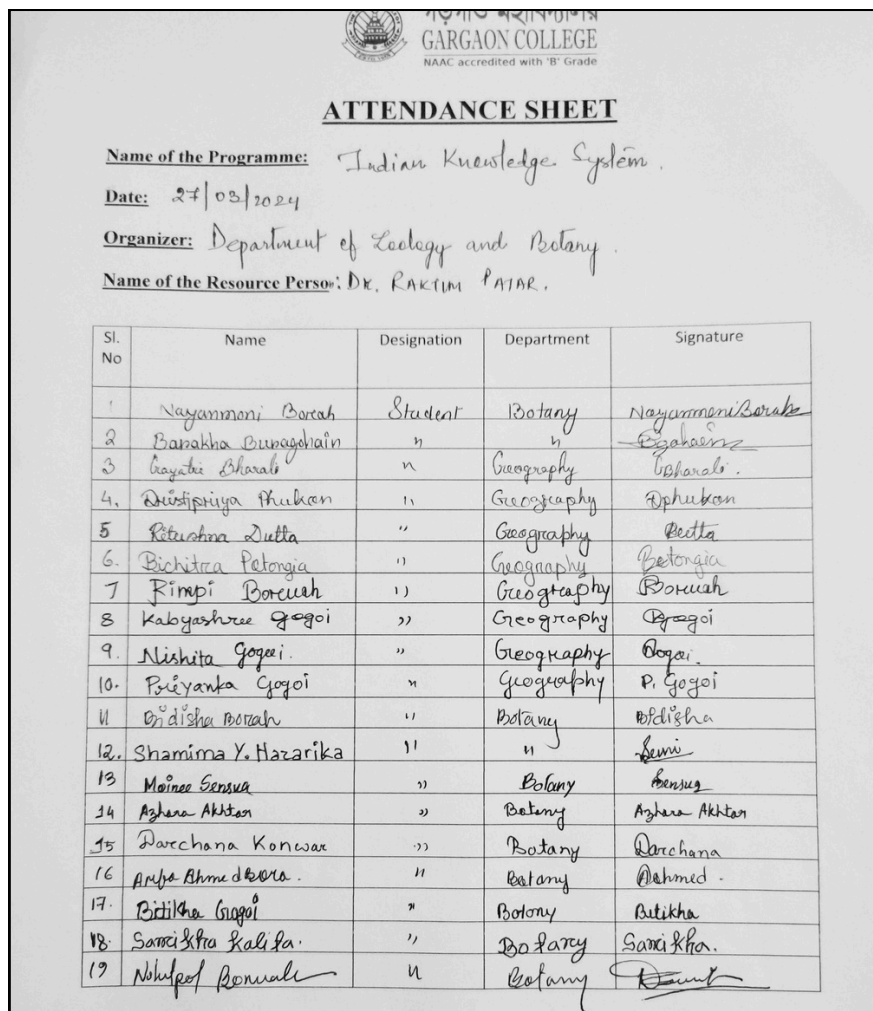 গড়গাঁও মহাবিদ্যালয়
GARGAON COLLEGE
NAAC accredited with 'B' Grade
ATTENDANCE SHEET
Name of the Programme: Indian Knowledge System.
Date: 27/03/2024
Organizer: Department of Zoology and Botany.
Name of the Resource Person: DR. RAKTIM PATAR.
Sl. No Name Designation Department Signature
1 Nayanmoni Borah Student Botany Nayanmoni Borah
2 Barakha Buragohain " "
3 Gayatri Bharali " Geography GBharali.
4. Dristipriya Phukan " Geography Dphukan
5 Ritushna Dutta " Geography Dutta
6. Bichitra Patongia " Geography
7 Rimpi Boruah " Geography Boruah
8 Kabyashree Gogoi " Geography Gogoi
9. Nishita Gogoi. " Geography Gogoi.
10. Priyanka Gogoi " Geography P. Gogoi
11 Bidisha Borah " Botany Bidisha
12. Shamima Y. Hazarika " " Semi
13 Moinee Sensua " Botany Sensua
14 Azhara Akhtar " Botany Azhara Akhtar
15 Darchana Konwar " Botany Darchana
16 Ahmed Bora. " Botany Ahmed.
17. Bitikha Gogoi " Botony Bitikha
18. Samikha Kalita. " Botany Samikha.
19 " Botany